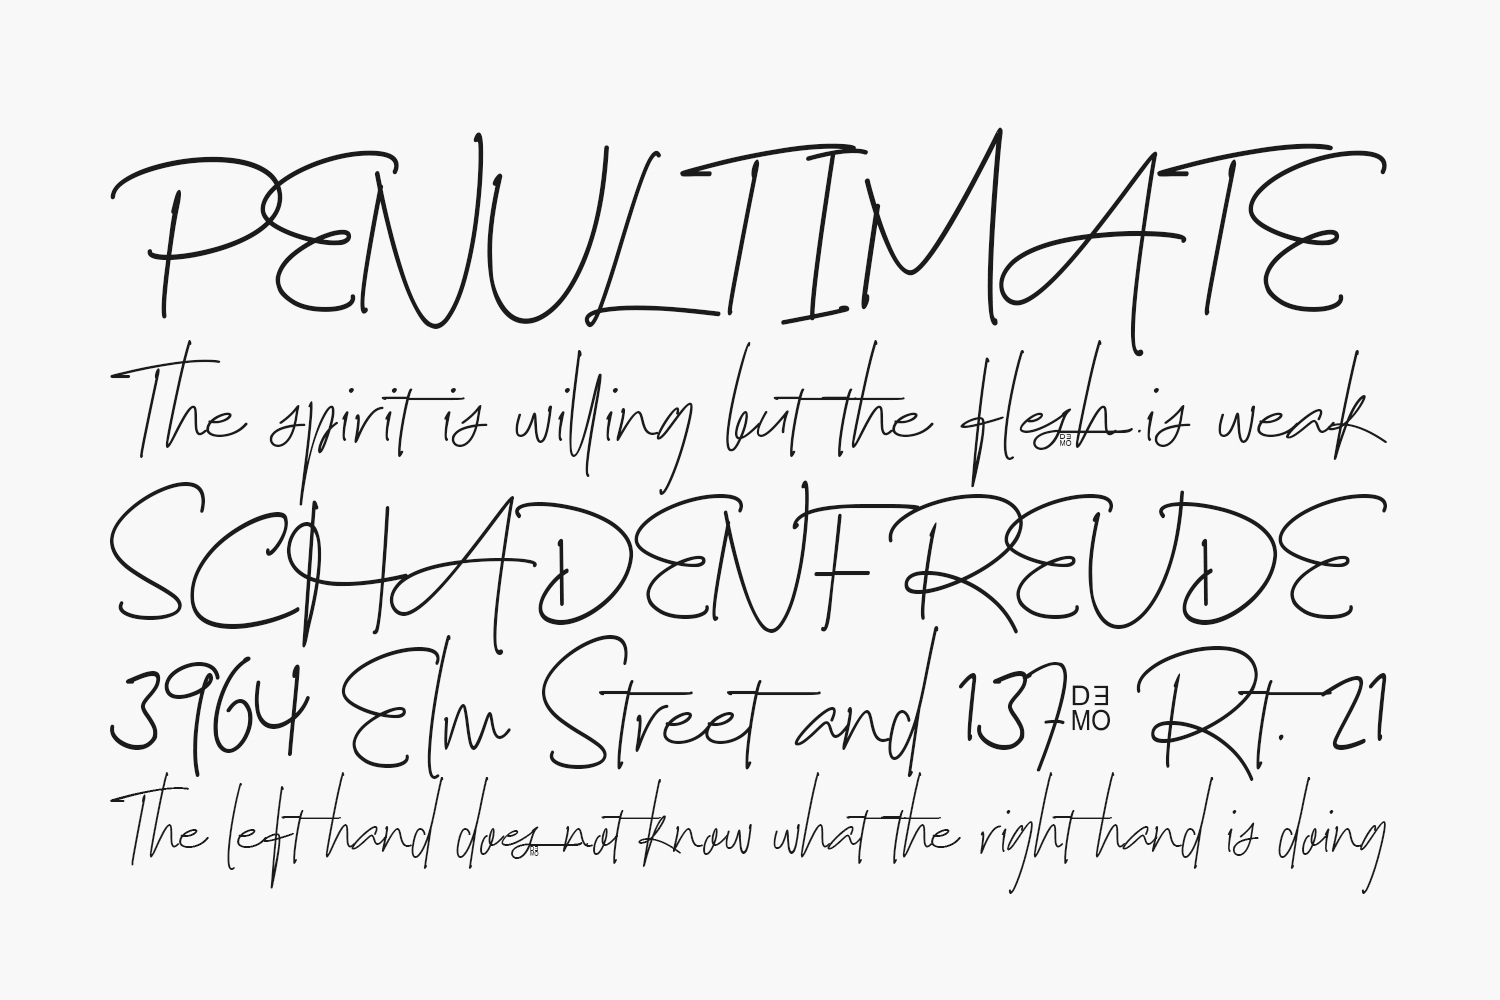 PENULTIMATE
The spirit is willing but the flesh is weak
SCHADENFREUDE
3964 Elm Street and 137 DEMO Rt. 21
The left hand does not know what the right hand is doing